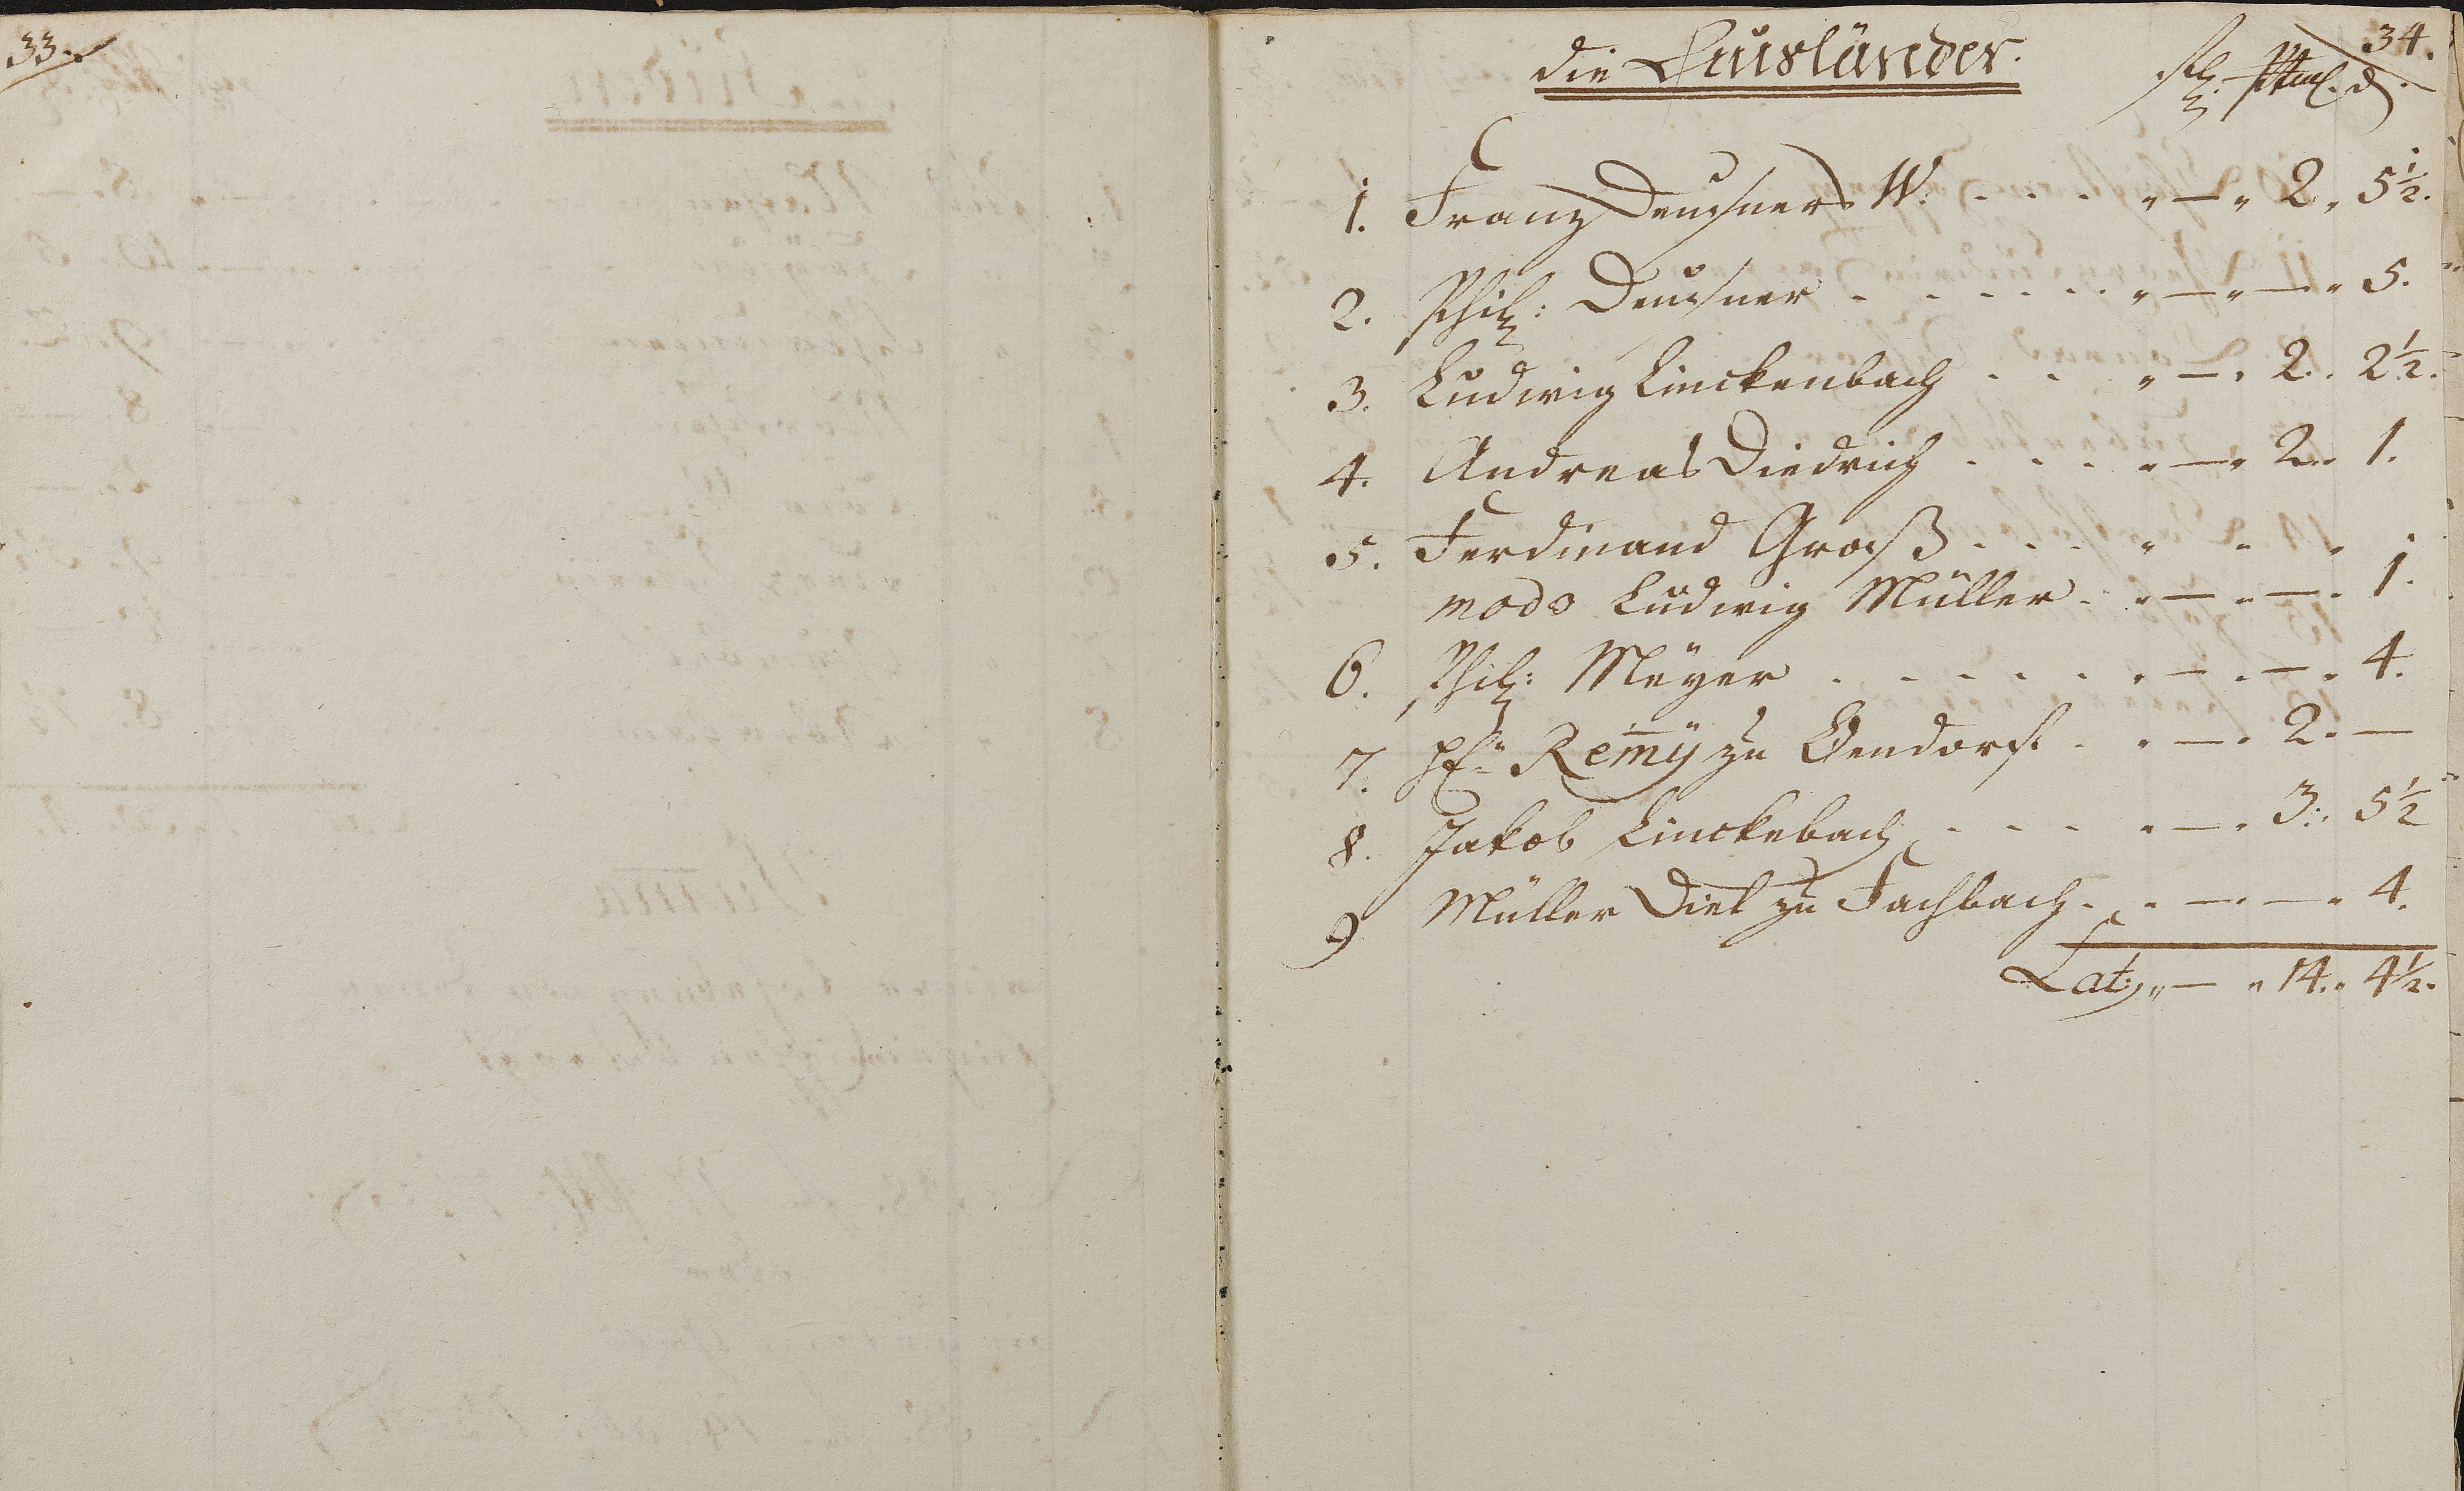 33.
34.
die Ausländer.
fl. d.
1. Franz Deusners W. . . . " — " 2 " 5½.
2. Phil: Deusner . . . . . " — " — " 5.
3. Ludwig Linckenbach . . . " — " 2 . 2½.
4. Andreas Diedrich . . . " — " 2 " 1.
5. Ferdinand Groß . . . " " "
modo Ludwig Müller . " — " — " 1.
6. Phil: Meÿer . . . . . " — " — " 4.
7. Remÿ zu Bendorf . " — " 2 . —
8. Jakob Linckebach . . . " — " 3 . 5½
9 Müller Diel zu Fachbach . " — " — " 4.
Lat: " — " 14 " 4½.